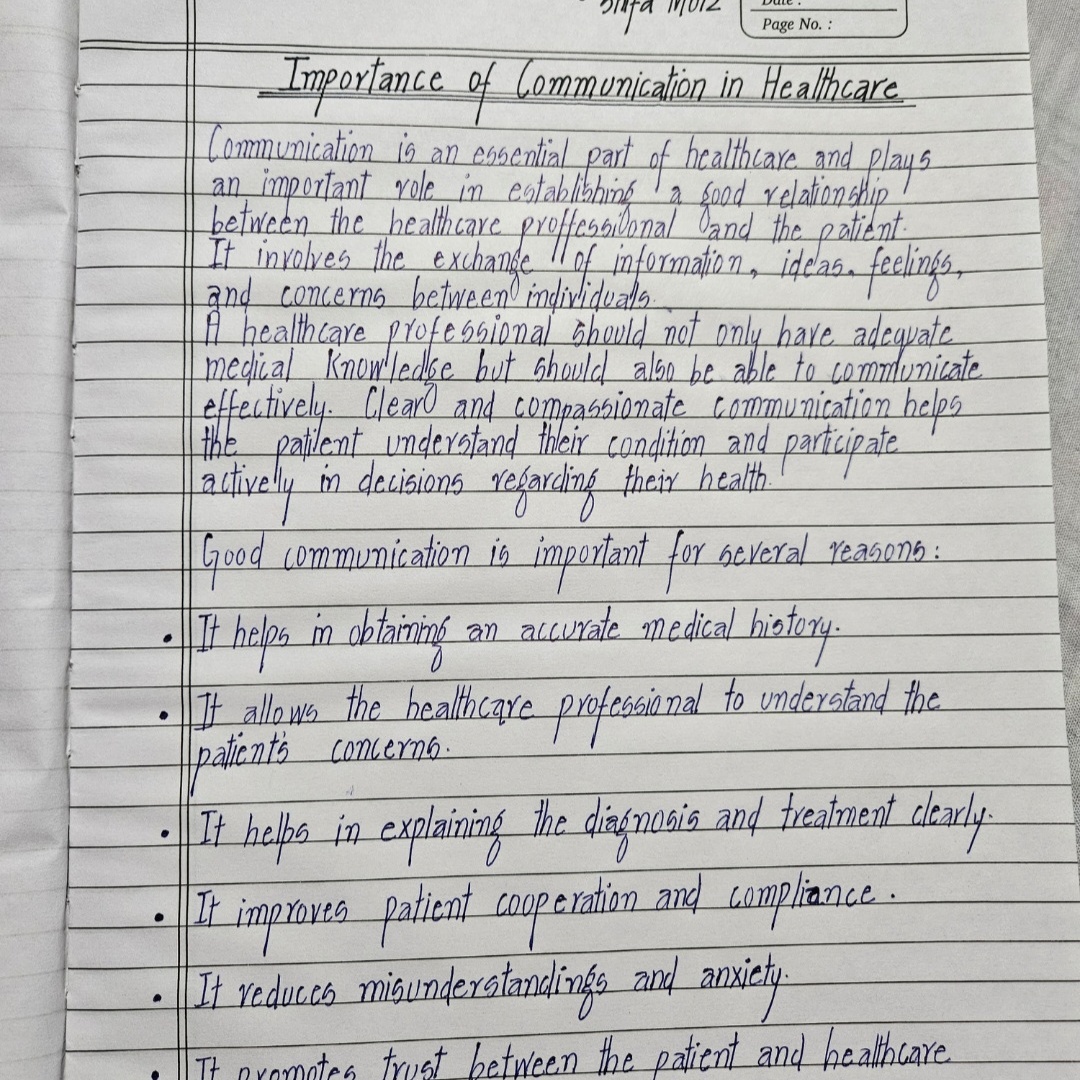 Date :
Page No. :
Importance of Communication in Healthcare
Communication is an essential part of healthcare and plays
an important role in establishing a good relationship
between the healthcare proffessional and the patient.
It involves the exchange of information, ideas, feelings,
and concerns between individuals.
A healthcare professional should not only have adequate
medical knowledge but should also be able to communicate
effectively. Clear and compassionate communication helps
the patient understand their condition and participate
actively in decisions regarding their health.
Good communication is important for several reasons:
• It helps in obtaining an accurate medical history.
• It allows the healthcare professional to understand the
patient's concerns.
• It helps in explaining the diagnosis and treatment clearly.
• It improves patient cooperation and compliance.
• It reduces misunderstandings and anxiety.
• It promotes trust between the patient and healthcare